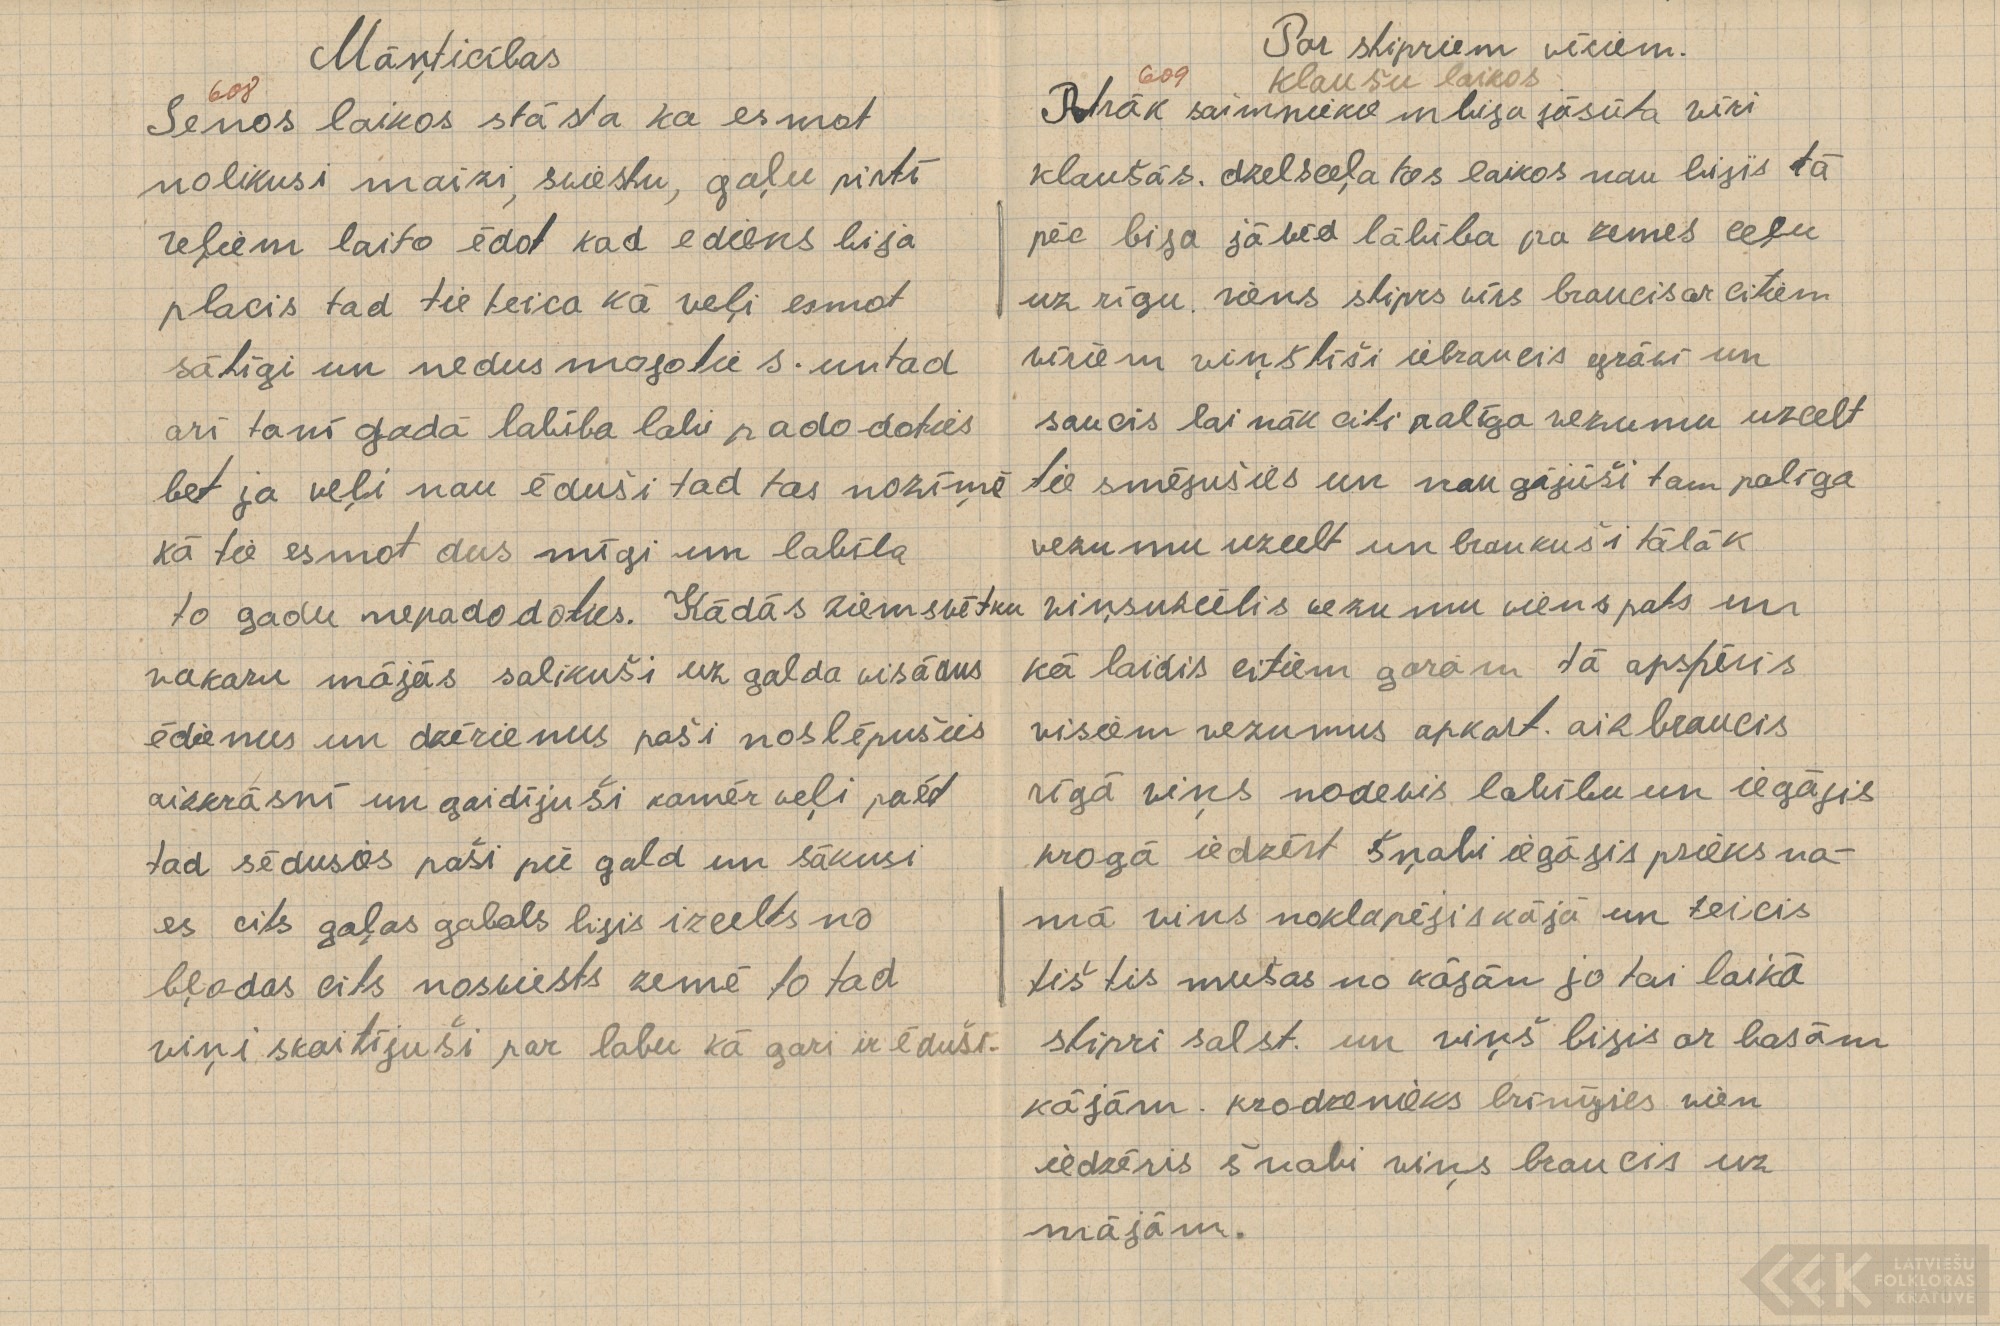 Māņticības
608
Senos laikos stāsta ka esmot
nolikusi maizi, sviestu, gaļu pirtī
veļiem laito ēdot kad ediens bija
placis tad tie teica kā veļi esmot
sātīgi un nedusmojoties. untad
arī tanī gadā labība labi padodoties
bet ja veļi nau ēduši tad tas nozīmē
kā tie esmot dusmīgi un labība
to gadu nepadodoties. Kādās ziemsvētku
vakaru mājās salikuši uz galda visādus
ēdienus un dzērienus paši noslēpušies
aizkrāsnī un gaidījuši kamēr veļi paēd
tad sēdusies paši pie gald un sākusi
es cits gaļas gabals bijis izcelts no
bļodas cits nosviests zemē to tad
viņi skaitījuši par labu kā gari ir ēduši.
Par stipriem vīriem.
609 Klaušu laikos
Pirāk saimniekiem bija jāsūta vīri
klaušās. dzelsceļa tos laikos nau bijis tā
pēc bija jāved lābība pa zemes ceļu
uz rīgu. viens stiprs vīrs braucis ar citiem
vīriem viņš tīši iebraucis grāvī un
saucis lai nāk citi palīga vezumu uzcelt
tie smējušies un nau gājuši tam palīga
vezumu uzcelt un braukuši tālāk
viņs uzcēlis vezumu viens pats un
kā laidis citiem garām tā apspēris
visiem vezumus apkart. aizbraucis
rīgā viņs nodevis labību un iegājis
krogā iedzērt šņabi iegājis prieksna-
mā vins noklapējis kājā un teicis
tiš tis mušas no kājām jo tai laikā
stipri salst. un viņš bijis ar basām
kājām. krodzenieks brīnījies vien
iedzēris šnabi viņs braucis uz
mājām.
LATVIEŠU
FOLKLORAS
KRĀTUVE